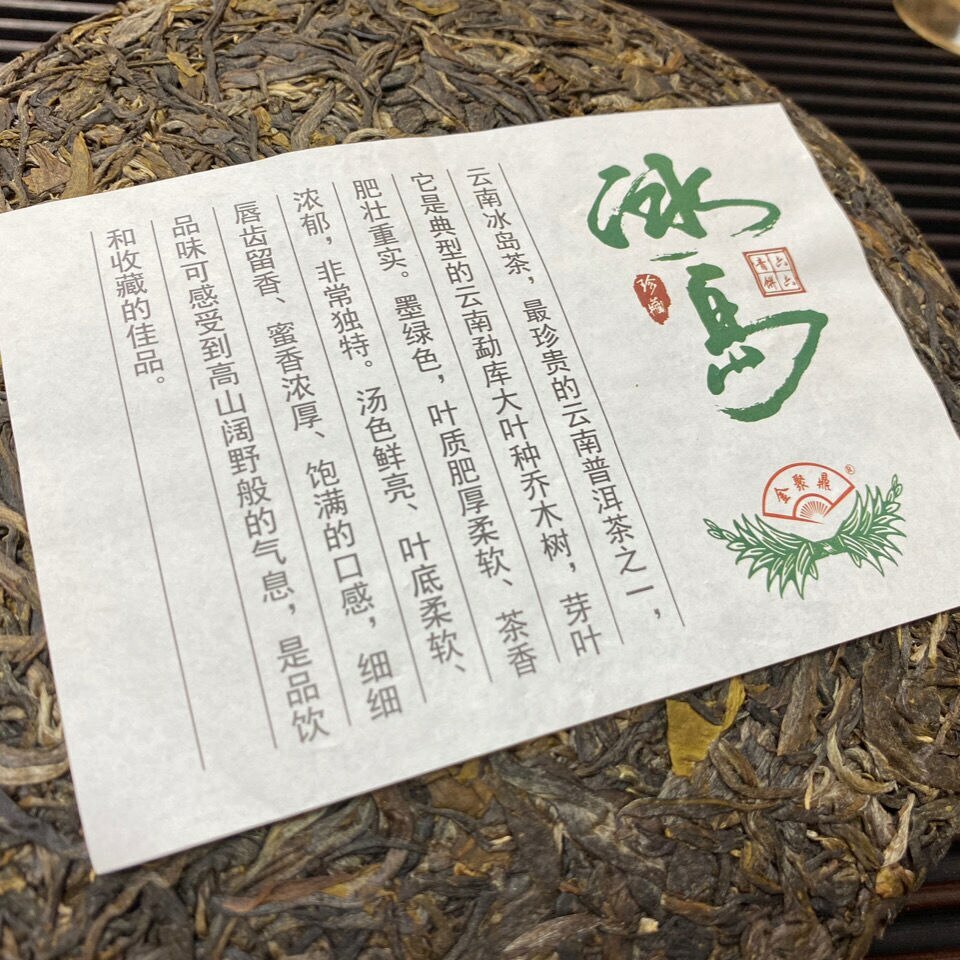 冰岛
珍藏
六六
青饼
云南冰岛茶，最珍贵的云南普洱茶之一，
它是典型的云南勐库大叶种乔木树，芽叶
肥壮重实。墨绿色，叶质肥厚柔软、茶香
浓郁，非常独特。汤色鲜亮、叶底柔软、
唇齿留香、蜜香浓厚、饱满的口感，细细
品味可感受到高山阔野般的气息，是品饮
和收藏的佳品。
金聚鼎